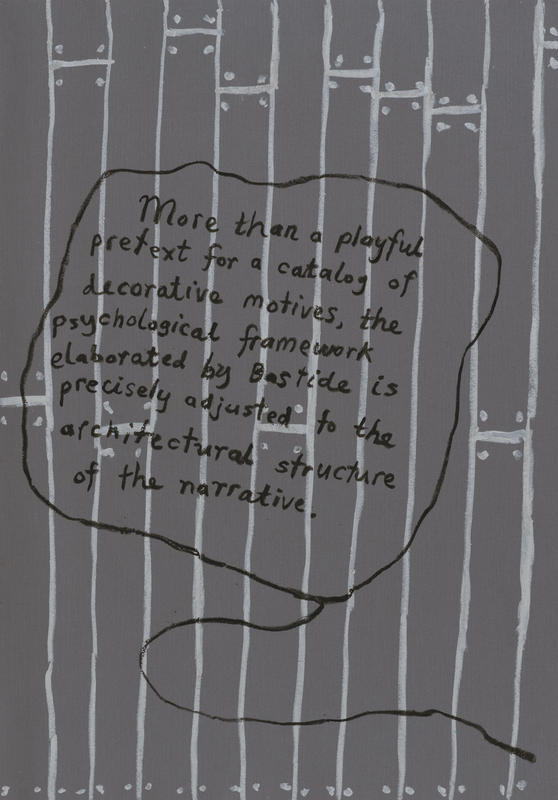 More than a playful
pretext for a catalog of
decorative motives, the
psychological framework
elaborated by Bastide is
precisely adjusted to the
architectural structure
of the narrative.